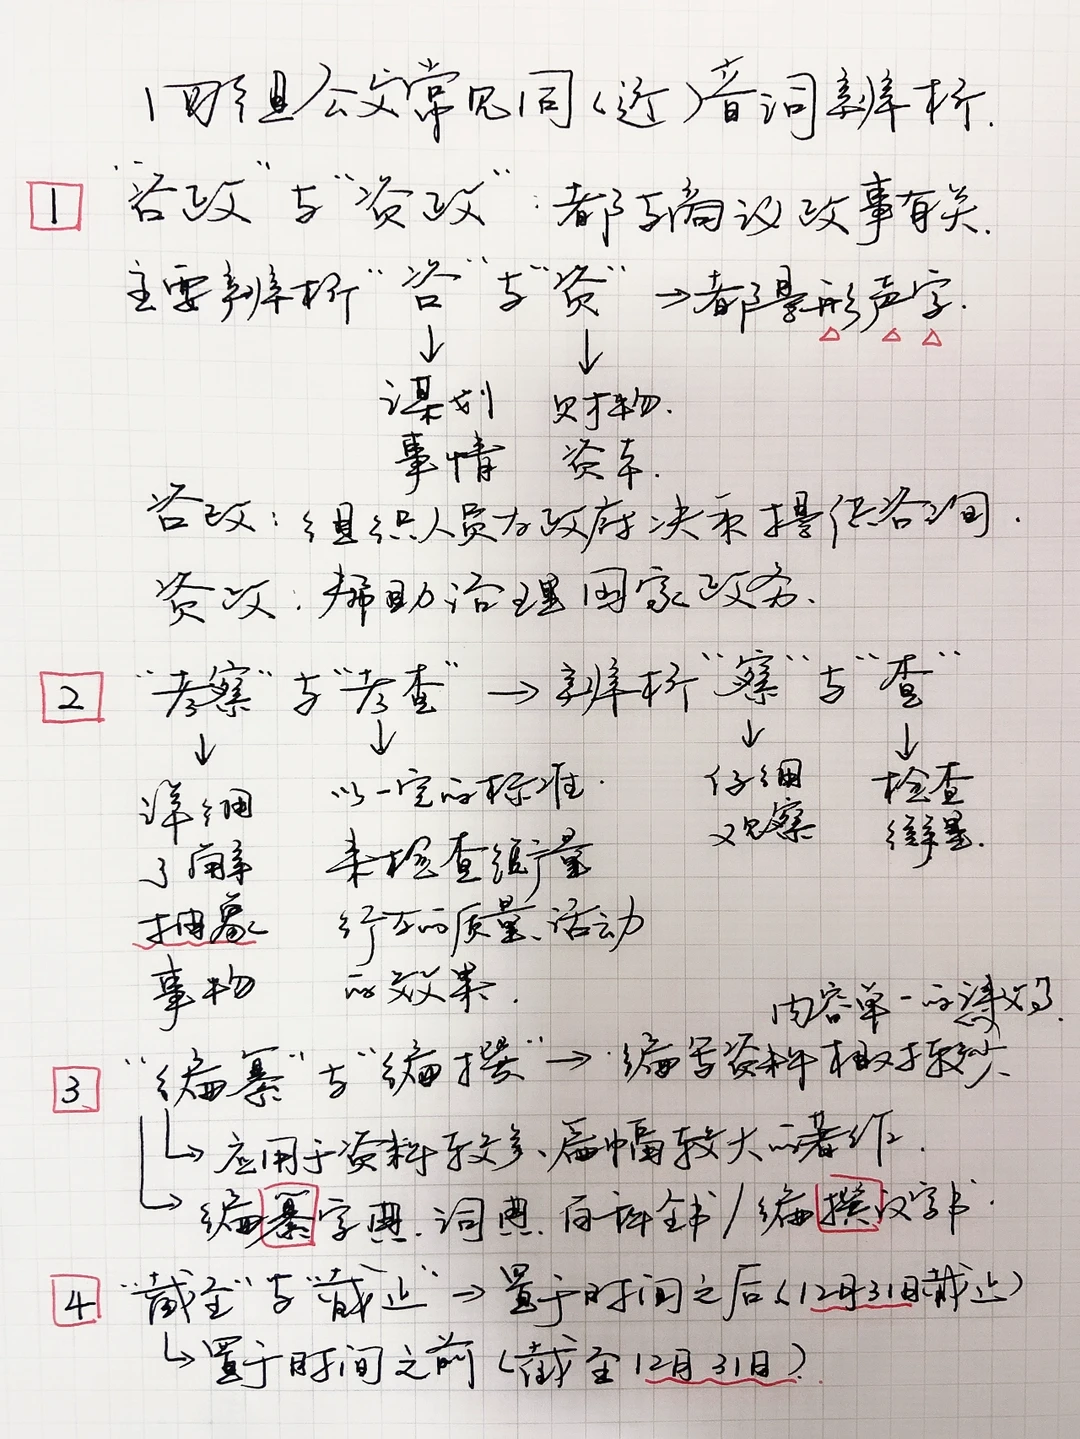 1四组公文常见同(近)音词辨析.
1 "咨政"与"资政":都与商议政事有关.
主要辨析"咨"与"资"→都是形声字.
↓ ↓
谋划 财物.
事情 资本.
咨政:组织人员为政府决策提供咨询.
资政:帮助治理国家政务.
2 "考察"与"考查"→辨析"察"与"查"
↓ ↓ ↓ ↓
详细 以一定的标准 仔细 检查
了解 来检查衡量 观察
抽象 行为的质量、活动
事物 的效果.
内容单一的
3 "编纂"与"编撰"→编写资料相对较少
应用于资料较多、篇幅较大的著作.
编纂字典.词典.百科全书/编撰汉字书.
4 "截至"与"截止"→置于时间之后(12月31日截止)
置于时间之前(截至12月31日).